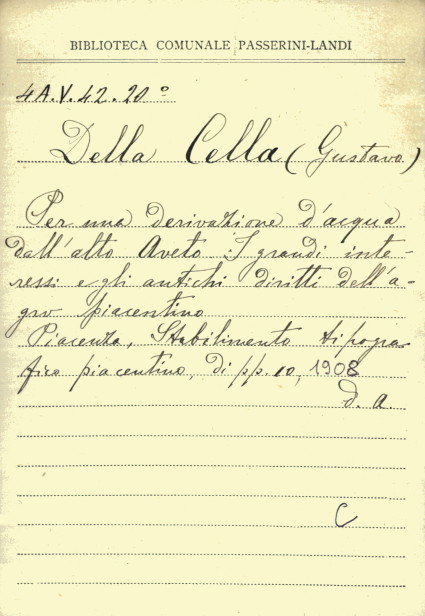 BIBLIOTECA COMUNALE PASSERINI-LANDI
4A.V.42.20°
Della Cella (Gustavo)
Per una derivazione d'acqua
dall'alto Aveto: I grandi inte-
ressi e gli antichi diritti dell'a-
gro piacentino
Piacenza, Stabilimento tipogra-
fico piacentino, di pp. 10, 1908
d. a.
C